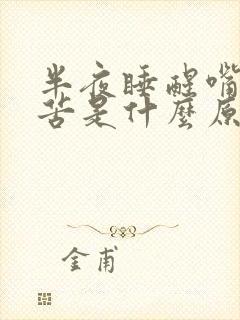 半夜睡醒嘴
苦是什麼原
金甫